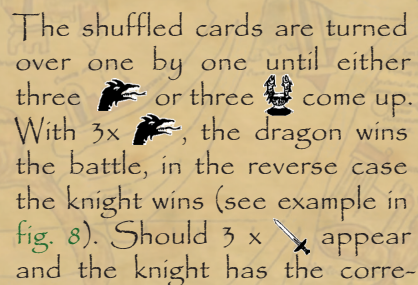 The shuffled cards are turned
over one by one until either
three or three come up.
With 3x , the dragon wins
the battle, in the reverse case
the knight wins (see example in
fig. 8). Should 3 x appear
and the knight has the corre-